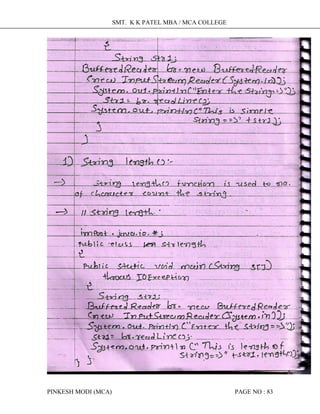 SMT. K K PATEL MBA / MCA COLLEGE
{
String str1;
BufferedReader br = new BufferedReader
(new InputStreamReader(System.in));
System.out.println("Enter the String=>");
Str1 = br.readLine();
System.out.println("This is simple
String ==>" + str1);
}
}
1) String length() :-
→ String length() function is used to no.
of character count the string.
→ // String length.
import java.io.*;
public class strlength
{
public static void main (String s[])
throws IOException
{
String str1;
BufferedReader br = new BufferedReader
(new InputStreamReader (System.in));
System.out.println("Enter the string ==>");
str1 = br.readLine();
System.out.println("This is length of
string=>" + str1.length());
} }
PINKESH MODI (MCA) PAGE NO : 83